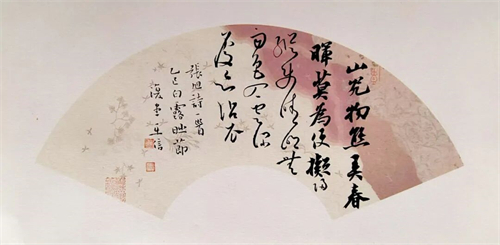 山光物態弄春
暉莫為便擬歸
縱使晴明無
雨色入雲深
處亦沾衣
張旭詩一首
乙巳白露時節